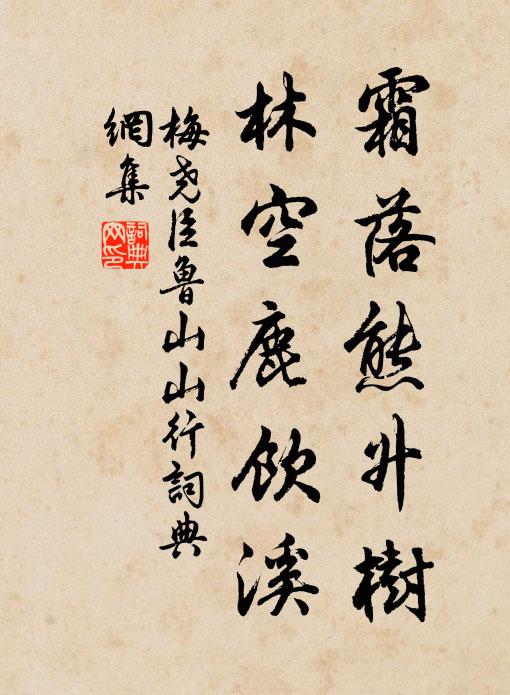 霜落熊升樹
林空鹿飲溪
梅尧臣魯山山行詞典
網集
詞典
网印